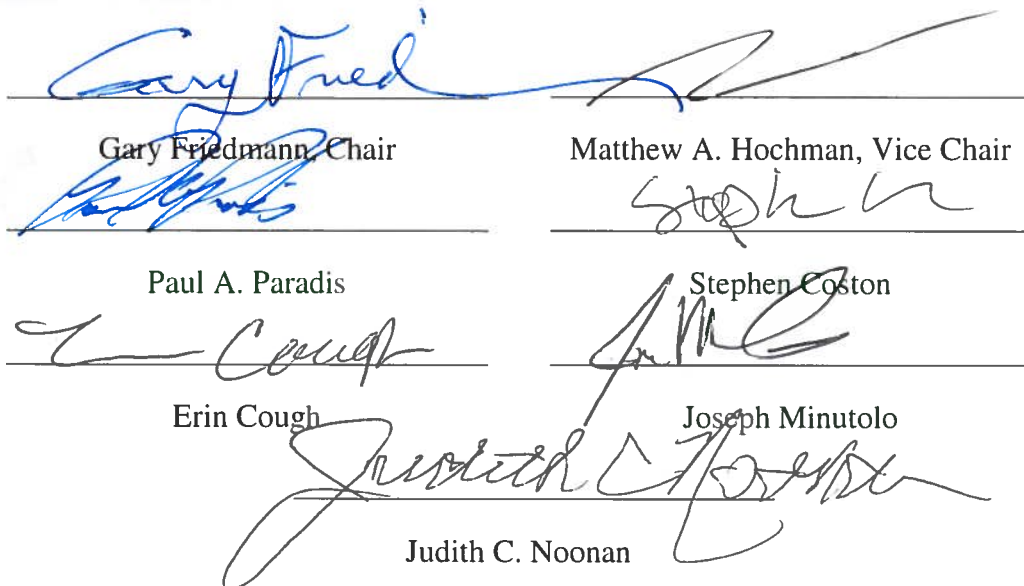 Gary Fried
Gary Friedmann, Chair
Matthew A. Hochman, Vice Chair
Paul A. Paradis
Stephen Coston
Erin Cough
Erin Cough
Joseph Minutolo
Judith C Noonan
Judith C. Noonan